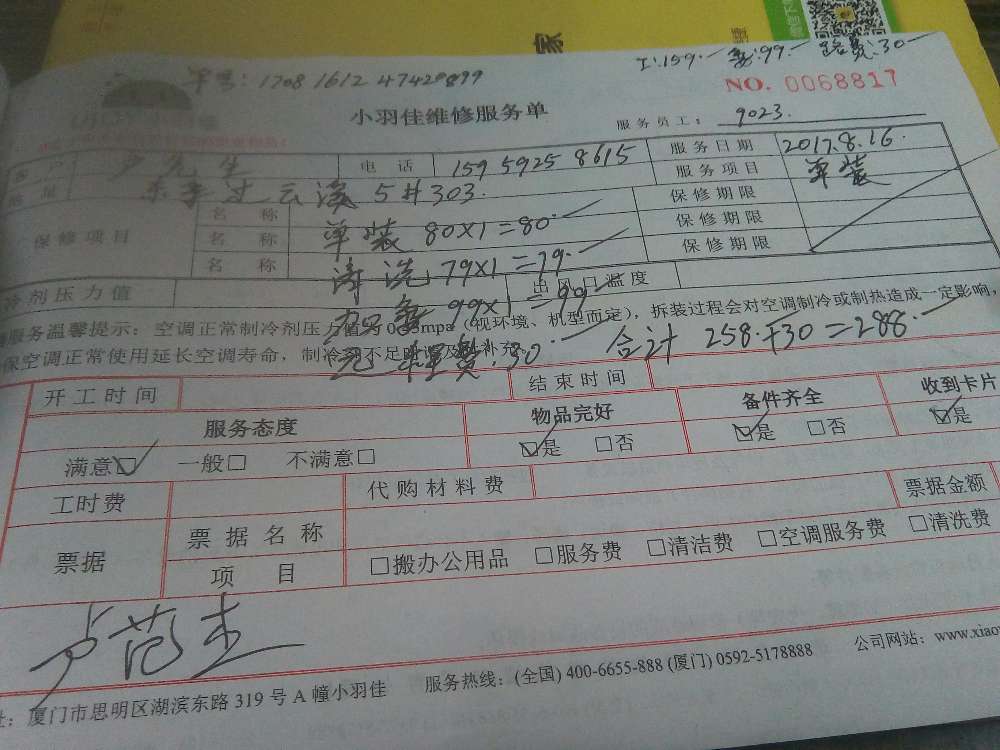 家
工:159.- 99.- 路费:30-
单号:1708 1612 47420899
NO. 0068817
小羽佳维修服务单
服务员工: 9023.
先生 电话 159 5925 8615 服务日期 2017.8.16
5# 303. 服务项目 单装
名称 单装 80×1=80.- 保修期限
保修项目 名称 清洗 79×1=79.- 保修期限
名称 99×1=99.- 保修期限
冷剂压力值 出风口温度
服务温馨提示:空调正常制冷剂压力值 mpa(视环境、机型而定),拆装过程会对空调制冷或制热造成一定影响,
保空调正常使用延长空调寿命,制冷剂不足 及时补充
远程费:30.- 合计 258.+30=288.-
开工时间 结束时间
服务态度 物品完好 备件齐全 收到卡片
满意☑ 一般□ 不满意□ ☑是 □否 ☑是 □否 ☑是
工时费 代购材料费 票据金额
票据 票据名称
项目 □搬办公用品 □服务费 □清洁费 □空调服务费 □清洗费
卢范杰
址:厦门市思明区湖滨东路 319 号 A 幢小羽佳 服务热线:(全国) 400-6655-888 (厦门) 0592-5178888 公司网站:www.xiao